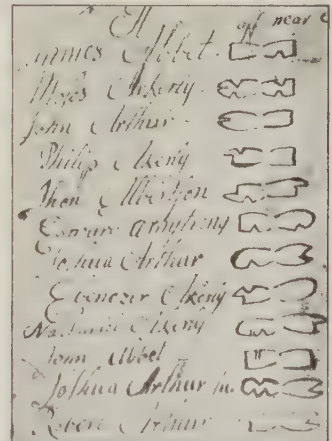 A off near
James Abbet
Moses Akerly
John Arthur
Philip Akerly
Arthur
Joshua Arthur
Ebenezer Akerly
Nathaniel Akerly
John Abbet
Joshua Arthur iu.
Robert Arthur